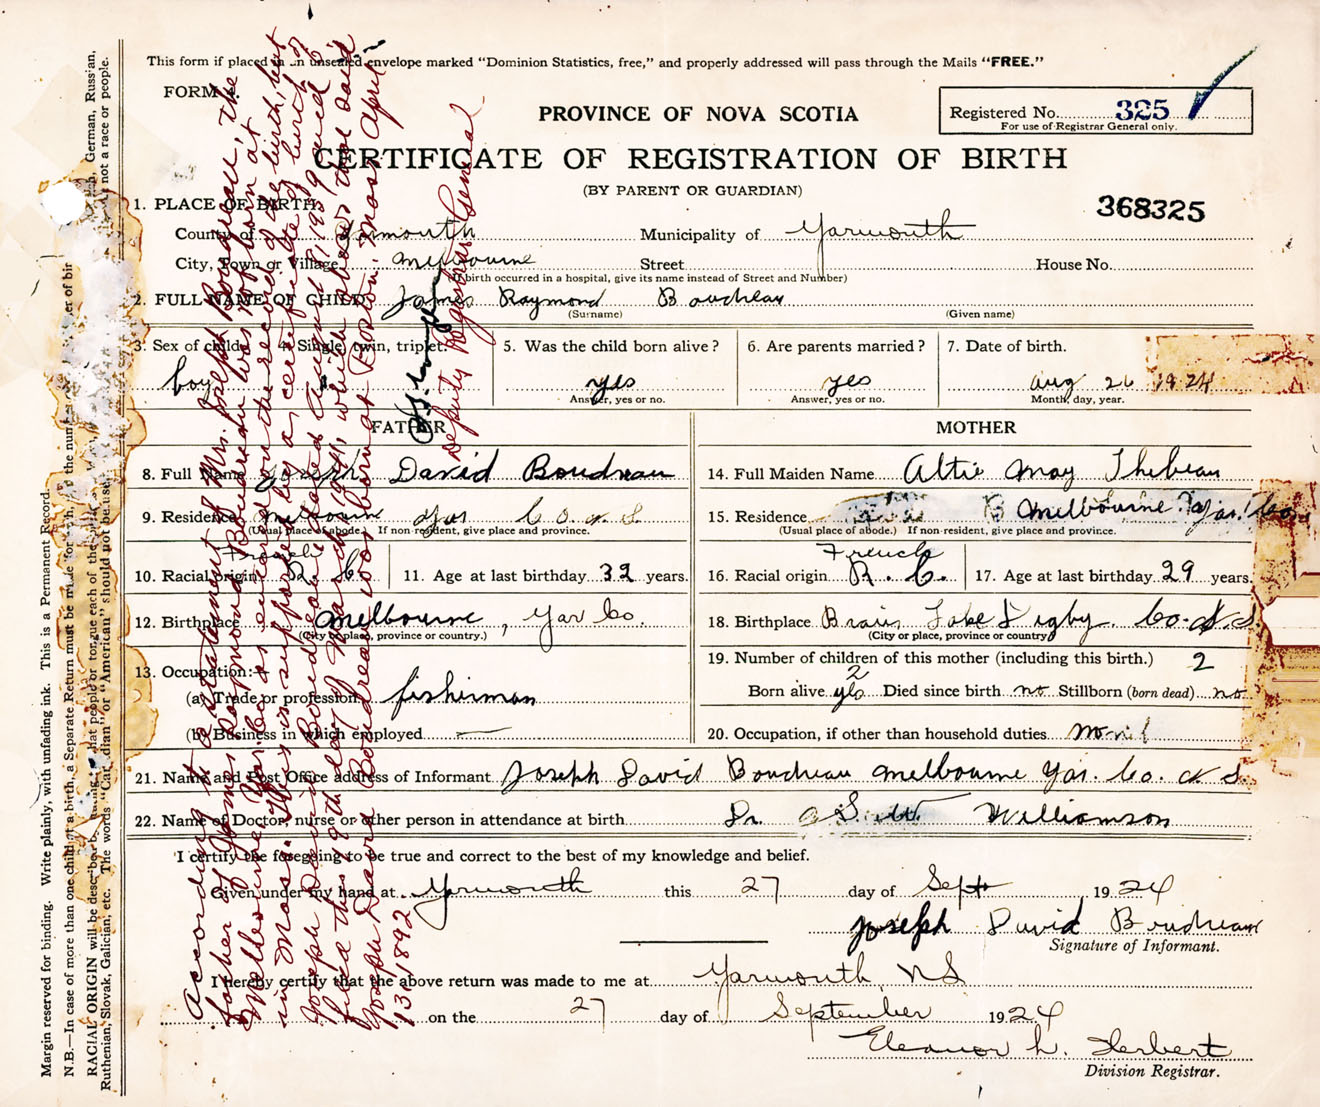 This form if placed in an unsealed envelope marked “Dominion Statistics, free,” and properly addressed will pass through the Mails “FREE.”
FORM
PROVINCE OF NOVA SCOTIA
Registered No. 325
For use of Registrar General only.
CERTIFICATE OF REGISTRATION OF BIRTH
(BY PARENT OR GUARDIAN)
368325
1. PLACE OF BIRTH:
County of Yarmouth Municipality of Yarmouth
City, Town or Village Melbourne Street House No.
(If birth occurred in a hospital, give its name instead of Street and Number)
2. FULL NAME OF CHILD James Raymond Boudreau
(Surname) (Given name)
3. Sex of child 4. Single, twin, triplet 5. Was the child born alive? 6. Are parents married? 7. Date of birth.
boy yes yes Aug 26 1924
Answer, yes or no. Answer, yes or no. Month, day, year.
FATHER MOTHER
8. Full Name Joseph David Boudreau 14. Full Maiden Name Altie May Thebeau
9. Residence Melbourne Yar Co. N S 15. Residence Melbourne Yar. Co
(Usual place of abode.) If non-resident, give place and province. (Usual place of abode.) If non-resident, give place and province.
French French
10. Racial origin R C 11. Age at last birthday 32 years. 16. Racial origin R. C. 17. Age at last birthday 29 years.
12. Birthplace Melbourne, Yar Co. 18. Birthplace Lake Digby Co. N.S.
(City or place, province or country.) (City or place, province or country)
19. Number of children of this mother (including this birth.) 2
13. Occupation:
2
(a) Trade or profession fisherman Born alive yes Died since birth no Stillborn (born dead) no
(b) Business in which employed — 20. Occupation, if other than household duties
21. Name and Post Office address of Informant Joseph David Boudreau Melbourne Yar. Co. N S
22. Name of Doctor, nurse or other person in attendance at birth Dr. Williamson
I certify the foregoing to be true and correct to the best of my knowledge and belief.
Given under my hand at Yarmouth this 27 day of Sept 1924
Joseph David Boudreau
Signature of Informant.
I hereby certify that the above return was made to me at Yarmouth, N S
on the 27 day of September 1924
Eleanor L. Herbert
Division Registrar.
According to a statement of Mr. Joseph Boudreau, the
father of James Raymond Boudreau was not born at
Melbourne, Yar. Co. as entered on the record of the birth, but
in Mass. This is supported by a certificate of birth of
Joseph David Boudreau dated August 8, 1939 and
filed this 29th day of March, 1941, which shows that said
Joseph David Boudreau was born at Boston, Mass April
13, 1892
Deputy Registrar General
Margin reserved for binding. Write plainly, with unfading ink. This is a Permanent Record.
N.B.—In case of more than one child at a birth, a Separate Return must be made for each, and the number of bir
RACIAL ORIGIN will be described that people or tongue each of the German, Russian,
Ruthenian, Slovak, Galician, etc. The words “Canadian” or “American” should not be used not a race or people.